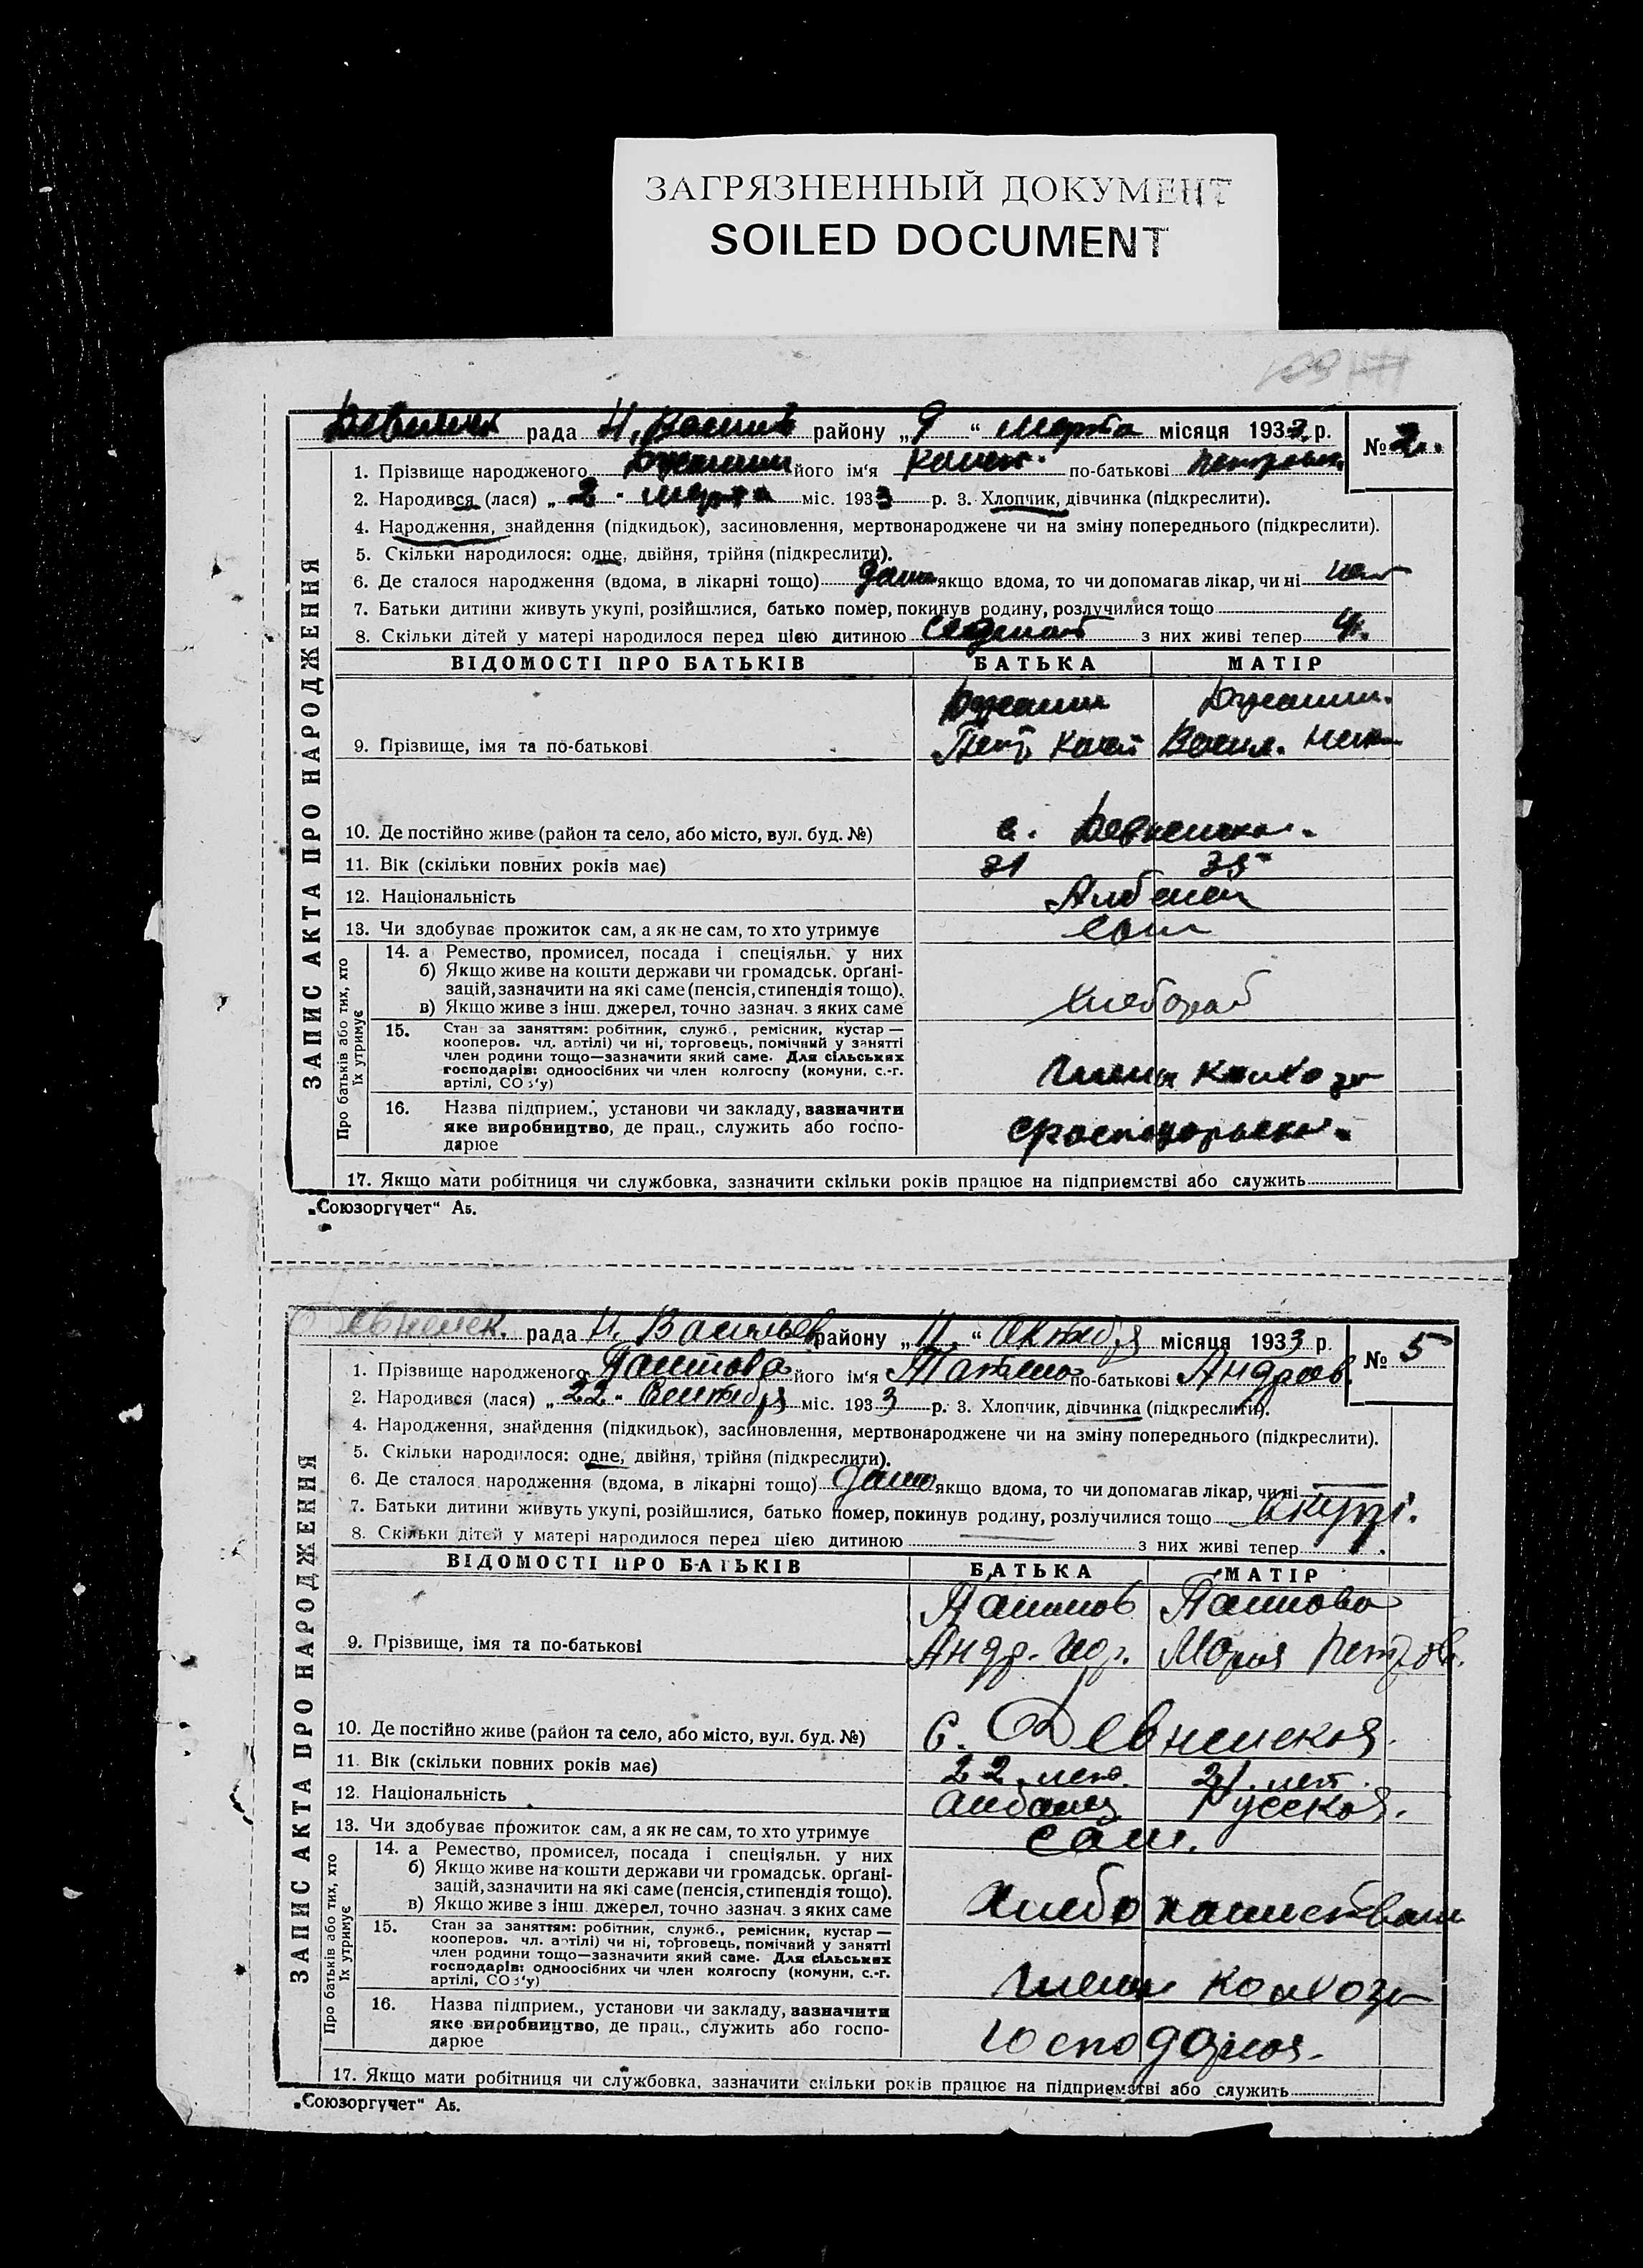 ЗАГРЯЗНЕННЫЙ ДОКУМЕНТ
SOILED DOCUMENT
рада Н. район у „9“ марта місяця 1933 р. № 2.
1. Прізвище народженого його ім'я по-батькові
2. Народився (лася) „2“ марта міс. 1933 р. 3. Хлопчик, дівчинка (підкреслити).
4. Народження, знайдення (підкидьок), засиновлення, мертвонароджене чи на зміну попереднього (підкреслити).
5. Скільки народилося: одне, двійня, трійня (підкреслити).
6. Де сталося народження (вдома, в лікарні тощо) дома якщо вдома, то чи допомагав лікар, чи ні нет
7. Батьки дитини живуть укупі, розійшлися, батько помер, покинув родину, розлучилися тощо
8. Скільки дітей у матері народилося перед цією дитиною з них живі тепер 4.
ВІДОМОСТІ ПРО БАТЬКІВ БАТЬКА МАТІР
9. Прізвище, імя та по-батькові
10. Де постійно живе (район та село, або місто, вул. буд. №) с.
11. Вік (скільки повних років має) 31 35
12. Національність Албанец
13. Чи здобуває прожиток сам, а як не сам, то хто утримує сам
ЗАПИС АКТА ПРО НАРОДЖЕННЯ
Про батьків або тих, хто їх утримує
14. а Ремество, промисел, посада і спеціяльн. у них
б) Якщо живе на кошти держави чи громадськ. орґані-
зацій, зазначити на які саме (пенсія, стипендія тощо).
в) Якщо живе з інш. джерел, точно зазнач. з яких саме хлебороб
15. Стан за заняттям: робітник, служб., ремісник, кустар —
кооперов. чл. артілі) чи ні, торговець, помічний у занятті
член родини тощо—зазначити який саме. Для сільських
господарів: одноосібних чи член колгоспу (комуни, с.-г.
артілі, СОЗ'у) члены колхоза
16. Назва підприєм., установи чи закладу, зазначити
яке виробництво, де прац., служить або госпо-
дарює
17. Якщо мати робітниця чи службовка, зазначити скільки років працює на підприємстві або служить
„Союзоргучет“ Аб.
рада Н. Васильев району „11.“ Октября місяця 1933 р. № 5
1. Прізвище народженого його ім'я по-батькові Андреев.
2. Народився (лася) „22“ Сентября міс. 1933 р. 3. Хлопчик, дівчинка (підкреслити).
4. Народження, знайдення (підкидьок), засиновлення, мертвонароджене чи на зміну попереднього (підкреслити).
5. Скільки народилося: одне, двійня, трійня (підкреслити).
6. Де сталося народження (вдома, в лікарні тощо) дома якщо вдома, то чи допомагав лікар, чи ні
7. Батьки дитини живуть укупі, розійшлися, батько помер, покинув родину, розлучилися тощо вкупі.
8. Скільки дітей у матері народилося перед цією дитиною з них живі тепер 1.
ВІДОМОСТІ ПРО БАТЬКІВ БАТЬКА МАТІР
9. Прізвище, імя та по-батькові Андр. Мария Петров.
10. Де постійно живе (район та село, або місто, вул. буд. №) с. Девненская.
11. Вік (скільки повних років має) 22 лет. 21 лет.
12. Національність албанец Русская.
13. Чи здобуває прожиток сам, а як не сам, то хто утримує сам.
ЗАПИС АКТА ПРО НАРОДЖЕННЯ
Про батьків або тих, хто їх утримує
14. а Ремество, промисел, посада і спеціяльн. у них
б) Якщо живе на кошти держави чи громадськ. орґані-
зацій, зазначити на які саме (пенсія, стипендія тощо).
в) Якщо живе з інш. джерел, точно зазнач. з яких саме
15. Стан за заняттям: робітник, служб., ремісник, кустар —
кооперов. чл. артілі) чи ні, торговець, помічний у занятті
член родини тощо—зазначити який саме. Для сільських
господарів: одноосібних чи член колгоспу (комуни, с.-г.
артілі, СОЗ'у) члены колхоза
16. Назва підприєм., установи чи закладу, зазначити
яке виробництво, де прац., служить або госпо-
дарює
17. Якщо мати робітниця чи службовка, зазначити скільки років працює на підприємстві або служить
„Союзоргучет“ Аб.